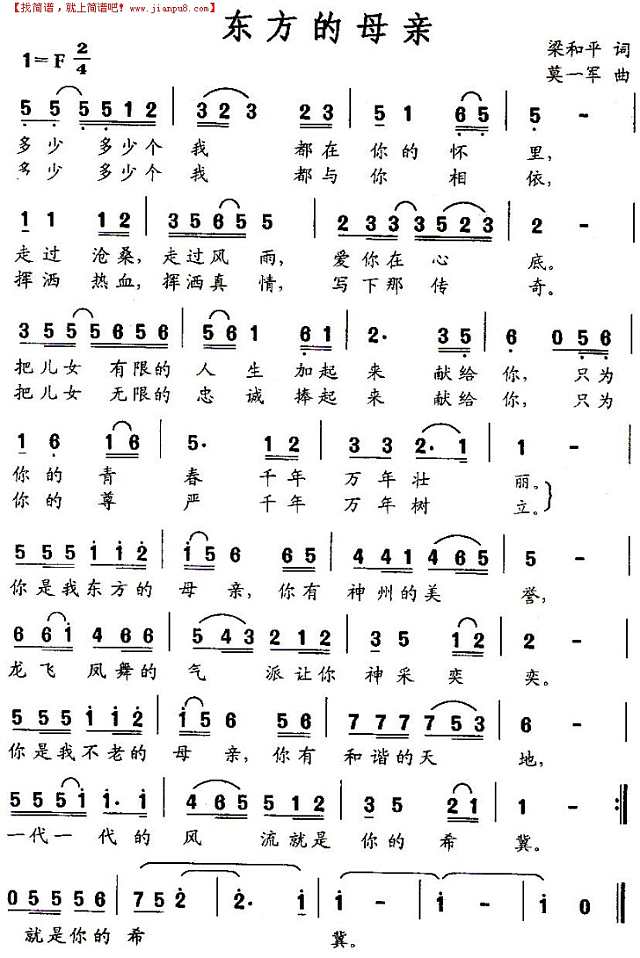 【找简谱，就上简谱吧! www.jianpu8.com】
东方的母亲
1=F 2/4
梁和平 词
莫一军 曲
5 5 5 5 1 2 | 3 2 3 2 3 | 5 1 6 5 | 5 - |
多少 多少个 我 都在 你的 怀 里,
多少 多少个 我 都与 你 相 依,
1 1 1 2 | 3 5 6 5 5 | 2 3 3 3 5 2 3 | 2 - |
走过 沧桑, 走过风 雨, 爱你在 心 底。
挥洒 热血, 挥洒真 情, 写下那 传 奇。
3 5 5 5 6 5 6 | 5 6 1 6 1 | 2· 3 5 | 6 0 5 6 |
把儿女 有限的 人 生 加起 来 献给 你, 只为
把儿女 无限的 忠 诚 捧起 来 献给 你, 只为
1 6 1 6 | 5· 1 2 | 3 3 2· 1 | 1 - |
你的 青 春 千年 万年壮 丽。
你的 尊 严 千年 万年树 立。
5 5 5 1 1 2 | 1 5 6 5 6 | 4 4 1 4 6 5 | 5 - |
你是我东方的 母 亲, 你有 神州的美 誉,
6 6 1 4 6 6 | 5 4 3 2 1 2 | 3 5 1 2 | 2 - |
龙飞 凤舞的 气 派让你 神采 奕 奕。
5 5 5 1 1 2 | 1 5 6 5 6 | 7 7 7 7 5 3 | 6 - |
你是我不老的 母 亲, 你有 和谐的天 地,
5 5 5 1 1· 1 | 4 6 5 5 1 2 | 3 5 2 1 | 1 - :‖
一代一 代的 风 流就是 你的 希 冀。
0 5 5 5 5 6 | 7 5 2 | 2· 1 | 1 - | 1 - | 1 0
就是你的 希 冀。